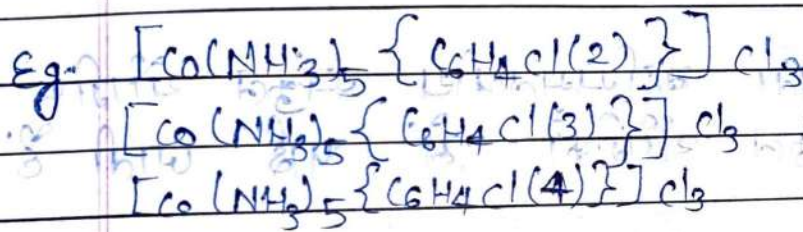 Eg. [Co(NH3)5 {C6H4Cl(2)}] Cl3
[Co(NH3)5 {C6H4Cl(3)}] Cl3
[Co(NH3)5 {C6H4Cl(4)}] Cl3